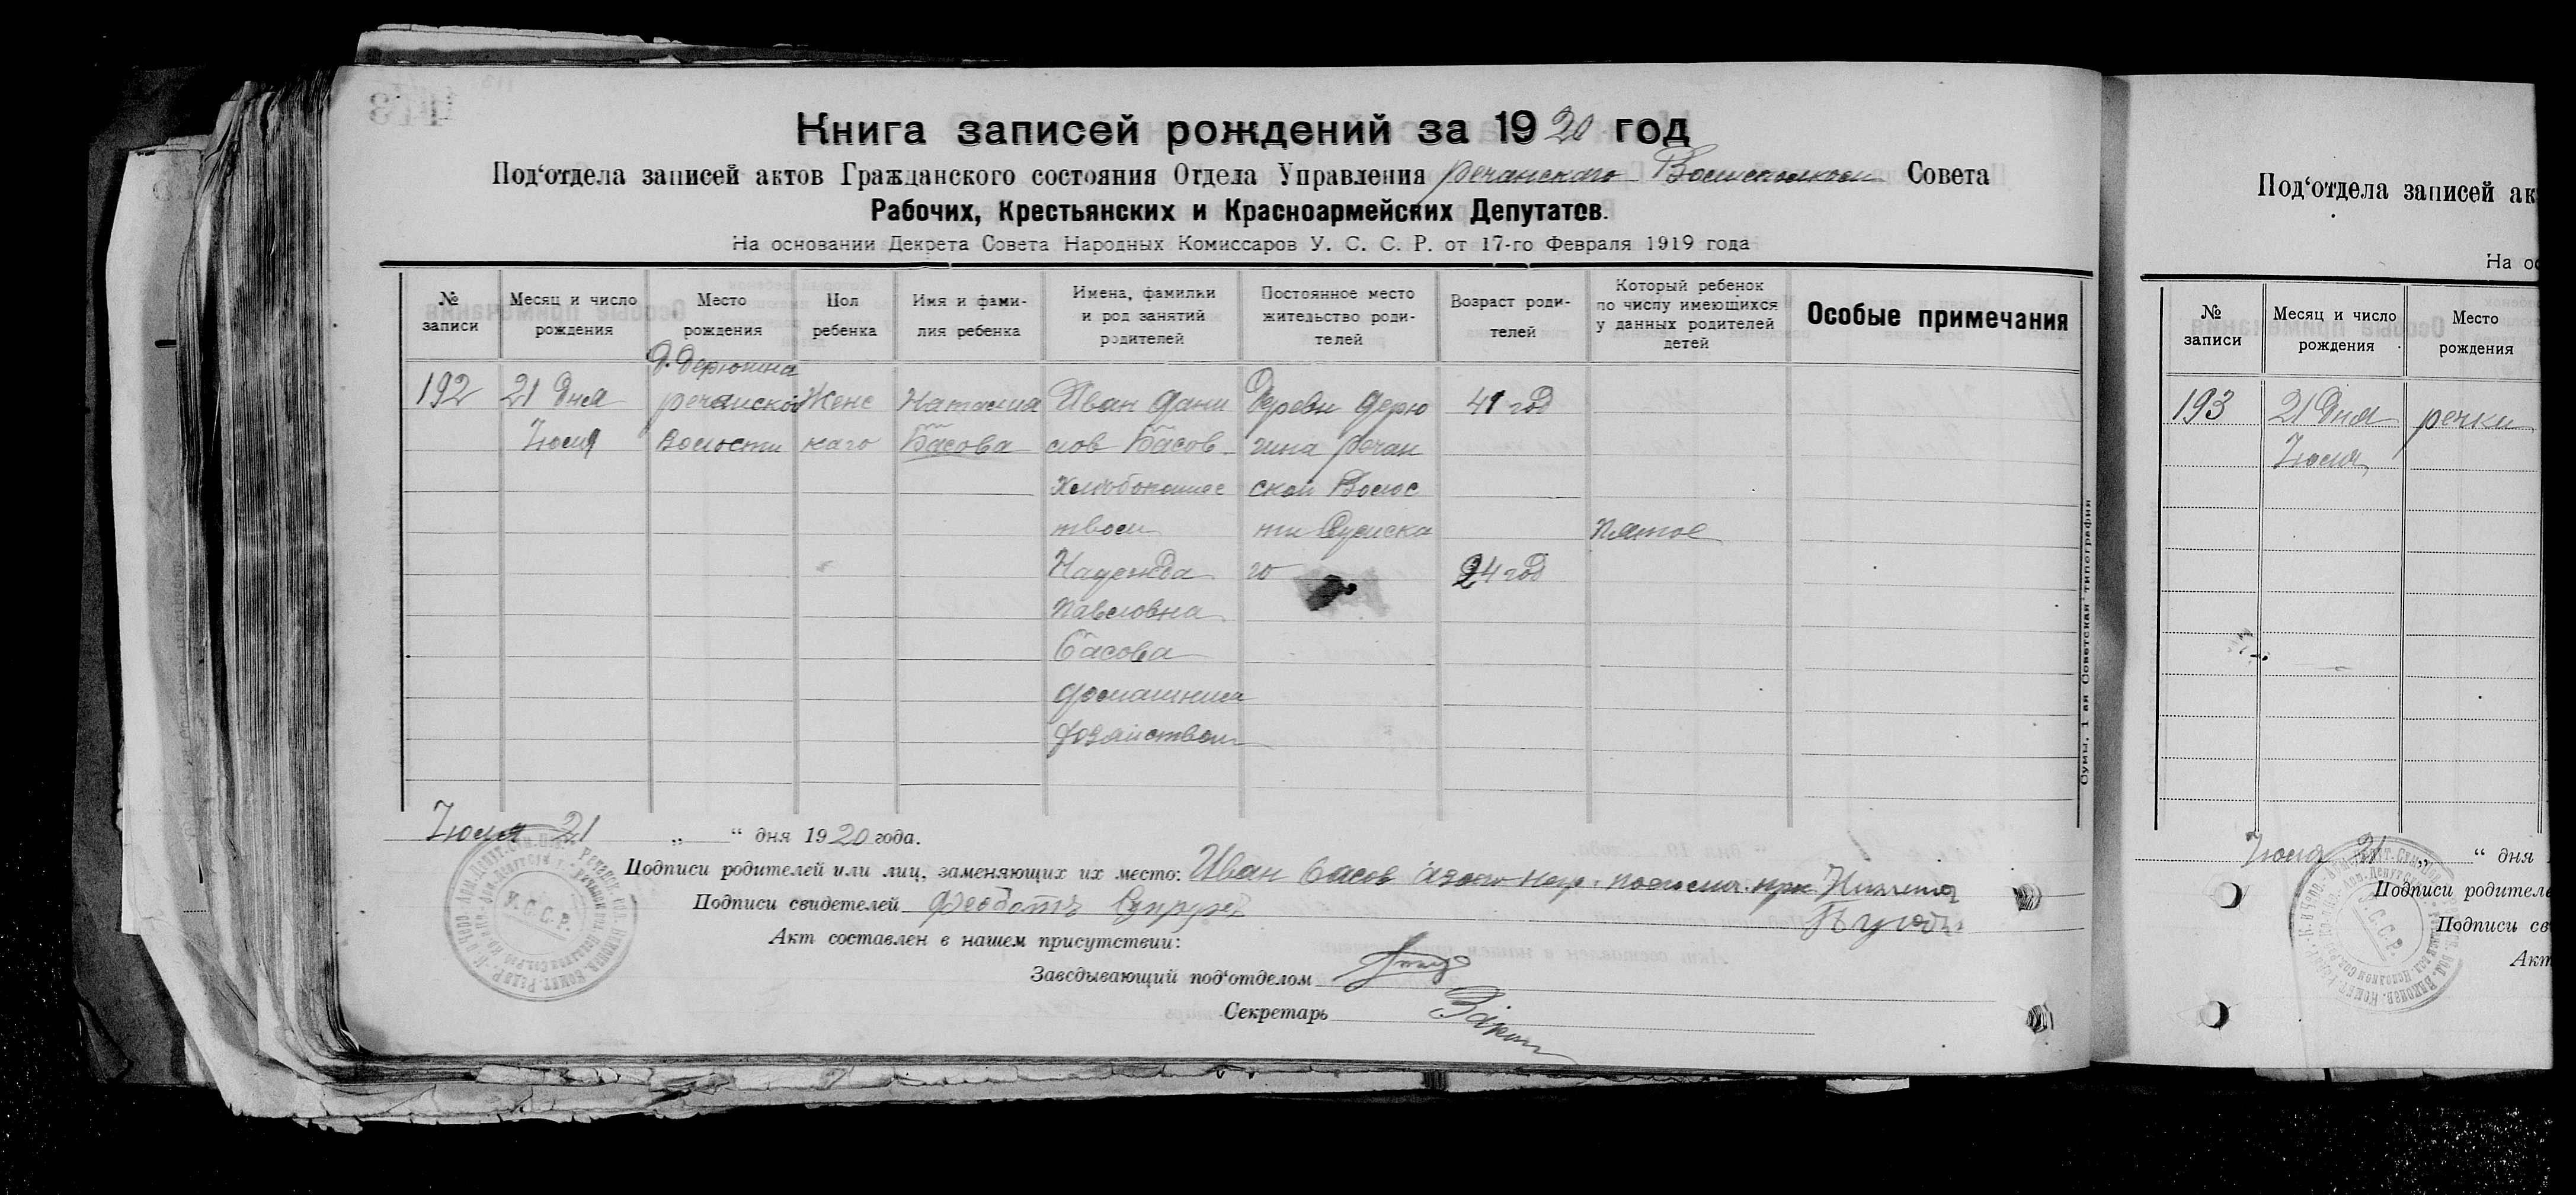 Книга записей рождений за 1920 год
Под‘отдела записей актов Гражданского состояния Отдела Управления речанского Волисполкома Совета
Рабочих, Крестьянских и Красноармейских Депутатов.
На основании Декрета Совета Народных Комиссаров У. С. С. Р. от 17-го Февраля 1919 года
№ записи
Месяц и число рождения
Место рождения
Пол ребенка
Имя и фамилия ребенка
Имена, фамилии и род занятий родителей
Постоянное место жительство родителей
Возраст родителей
Который ребенок по числу имеющихся у данных родителей детей
Особые примечания
192
21 Дня
Июля
Д. Дерюгина
речанской
Волости
Женс
каго
Наталия
Басова
Иван Дани
лов Басов
Хлебопашес
твом
Надежда
Павловна
Басова
домашним
хозяйством
Деревн Дерю
гина речан
ской Волос
ти Сумска
го
41 год
24 год
Пятое
Июля 21 „ “ дня 1920 года.
Подписи родителей или лиц, заменяющих их место: Иван Басов
Подписи свидетелей Феодотъ
Акт составлен в нашем присутствии:
Заведывающий под‘отделом
Секретарь
У.С.С.Р.
Сумы, 1-ая Советская типография
Под‘отдела записей ак
На ос
№ записи
Месяц и число рождения
Место рождения
193
21 Дня
Июля
речки
Июля 21 „ “ дня
Подписи родителе
Подписи св
Акт
У.С.С.Р.